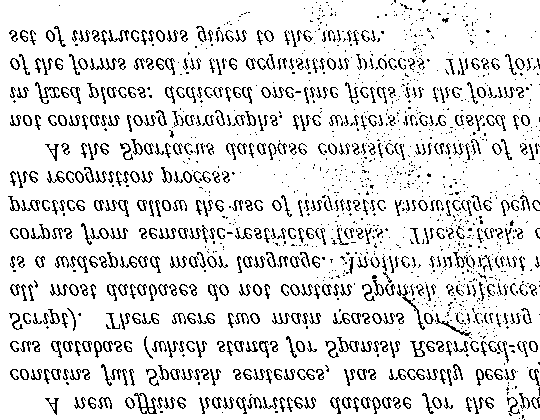 A new offline handwritten database for the Spa
contains full Spanish sentences, has recently been d
cus database (which stands for Spanish Restricted-do
Script). There were two main reasons for creating
all, most databases do not contain Spanish sentences,
is a widespread major language. Another important r
corpus from semantic-restricted tasks. These tasks
practice and allow the use of linguistic knowledge beyo
the recognition process.
As the Spartacus database consisted mainly of sh
not contain long paragraphs, the writers were asked to
in fixed places: dedicated one-line fields in the forms.
of the forms used in the acquisition process. These for
set of instructions given to the writer.